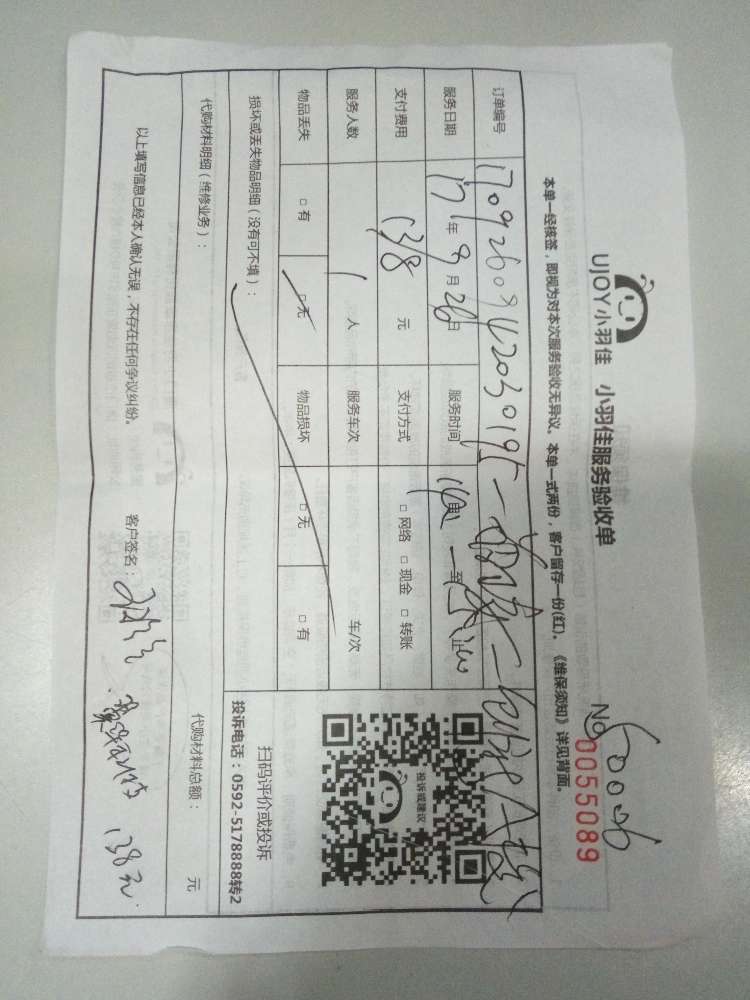 UJOY小羽佳 小羽佳服务验收单
50006
No 0055089
本单一经核签，即视为对本次服务验收无异议。本单一式两份，客户留存一份(红)。《维保须知》详见背面。
订单编号
服务日期 17年9月26日 服务时间 至
支付费用 138元 支付方式 □网络 □现金 □转账
服务人数 1人 服务车次 车/次
物品丢失 □有 □无 物品损坏 □无 □有
损坏或丢失物品明细（没有可不填）：
投诉或建议
扫码评价或投诉
投诉电话：0592-5178888转2
代购材料明细（维修业务）： 代购材料总额： 元
以上填写信息已经本人确认无误，不存在任何争议纠纷。 客户签名： 138元